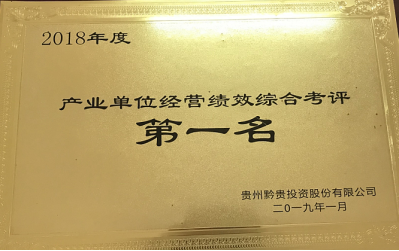 2018年度
产业单位经营绩效综合考评
第一名
贵州黔贵投资股份有限公司
二〇一九年一月